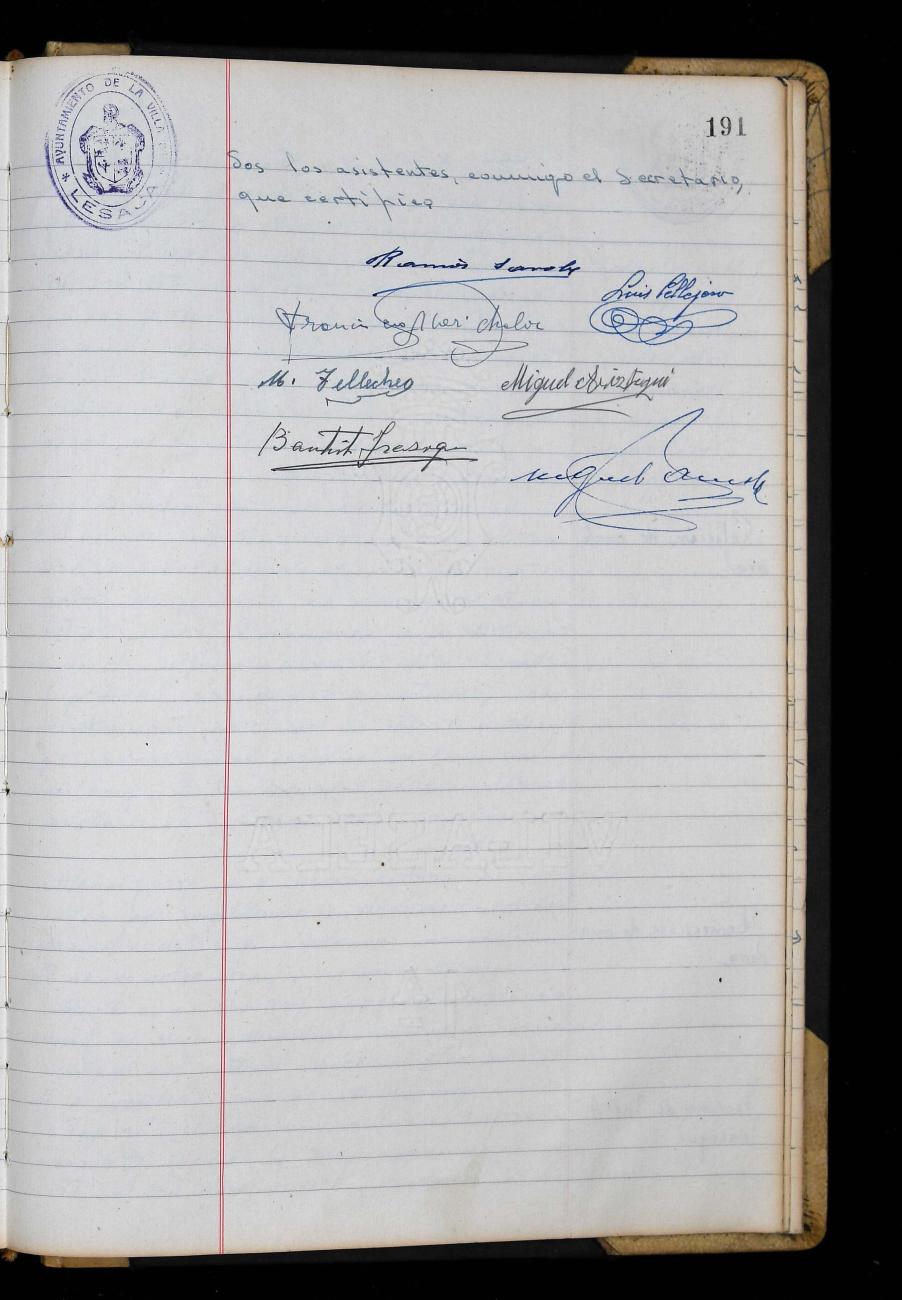 AYUNTAMIENTO DE LA VILLA
* LESACA
191
Dos los asistentes, conmigo el Secretario,
que certifico
Ramón
Luis Pellejero
Francisco
M. Tellechea
Miguel Ariztegui
Bautist
Miguel